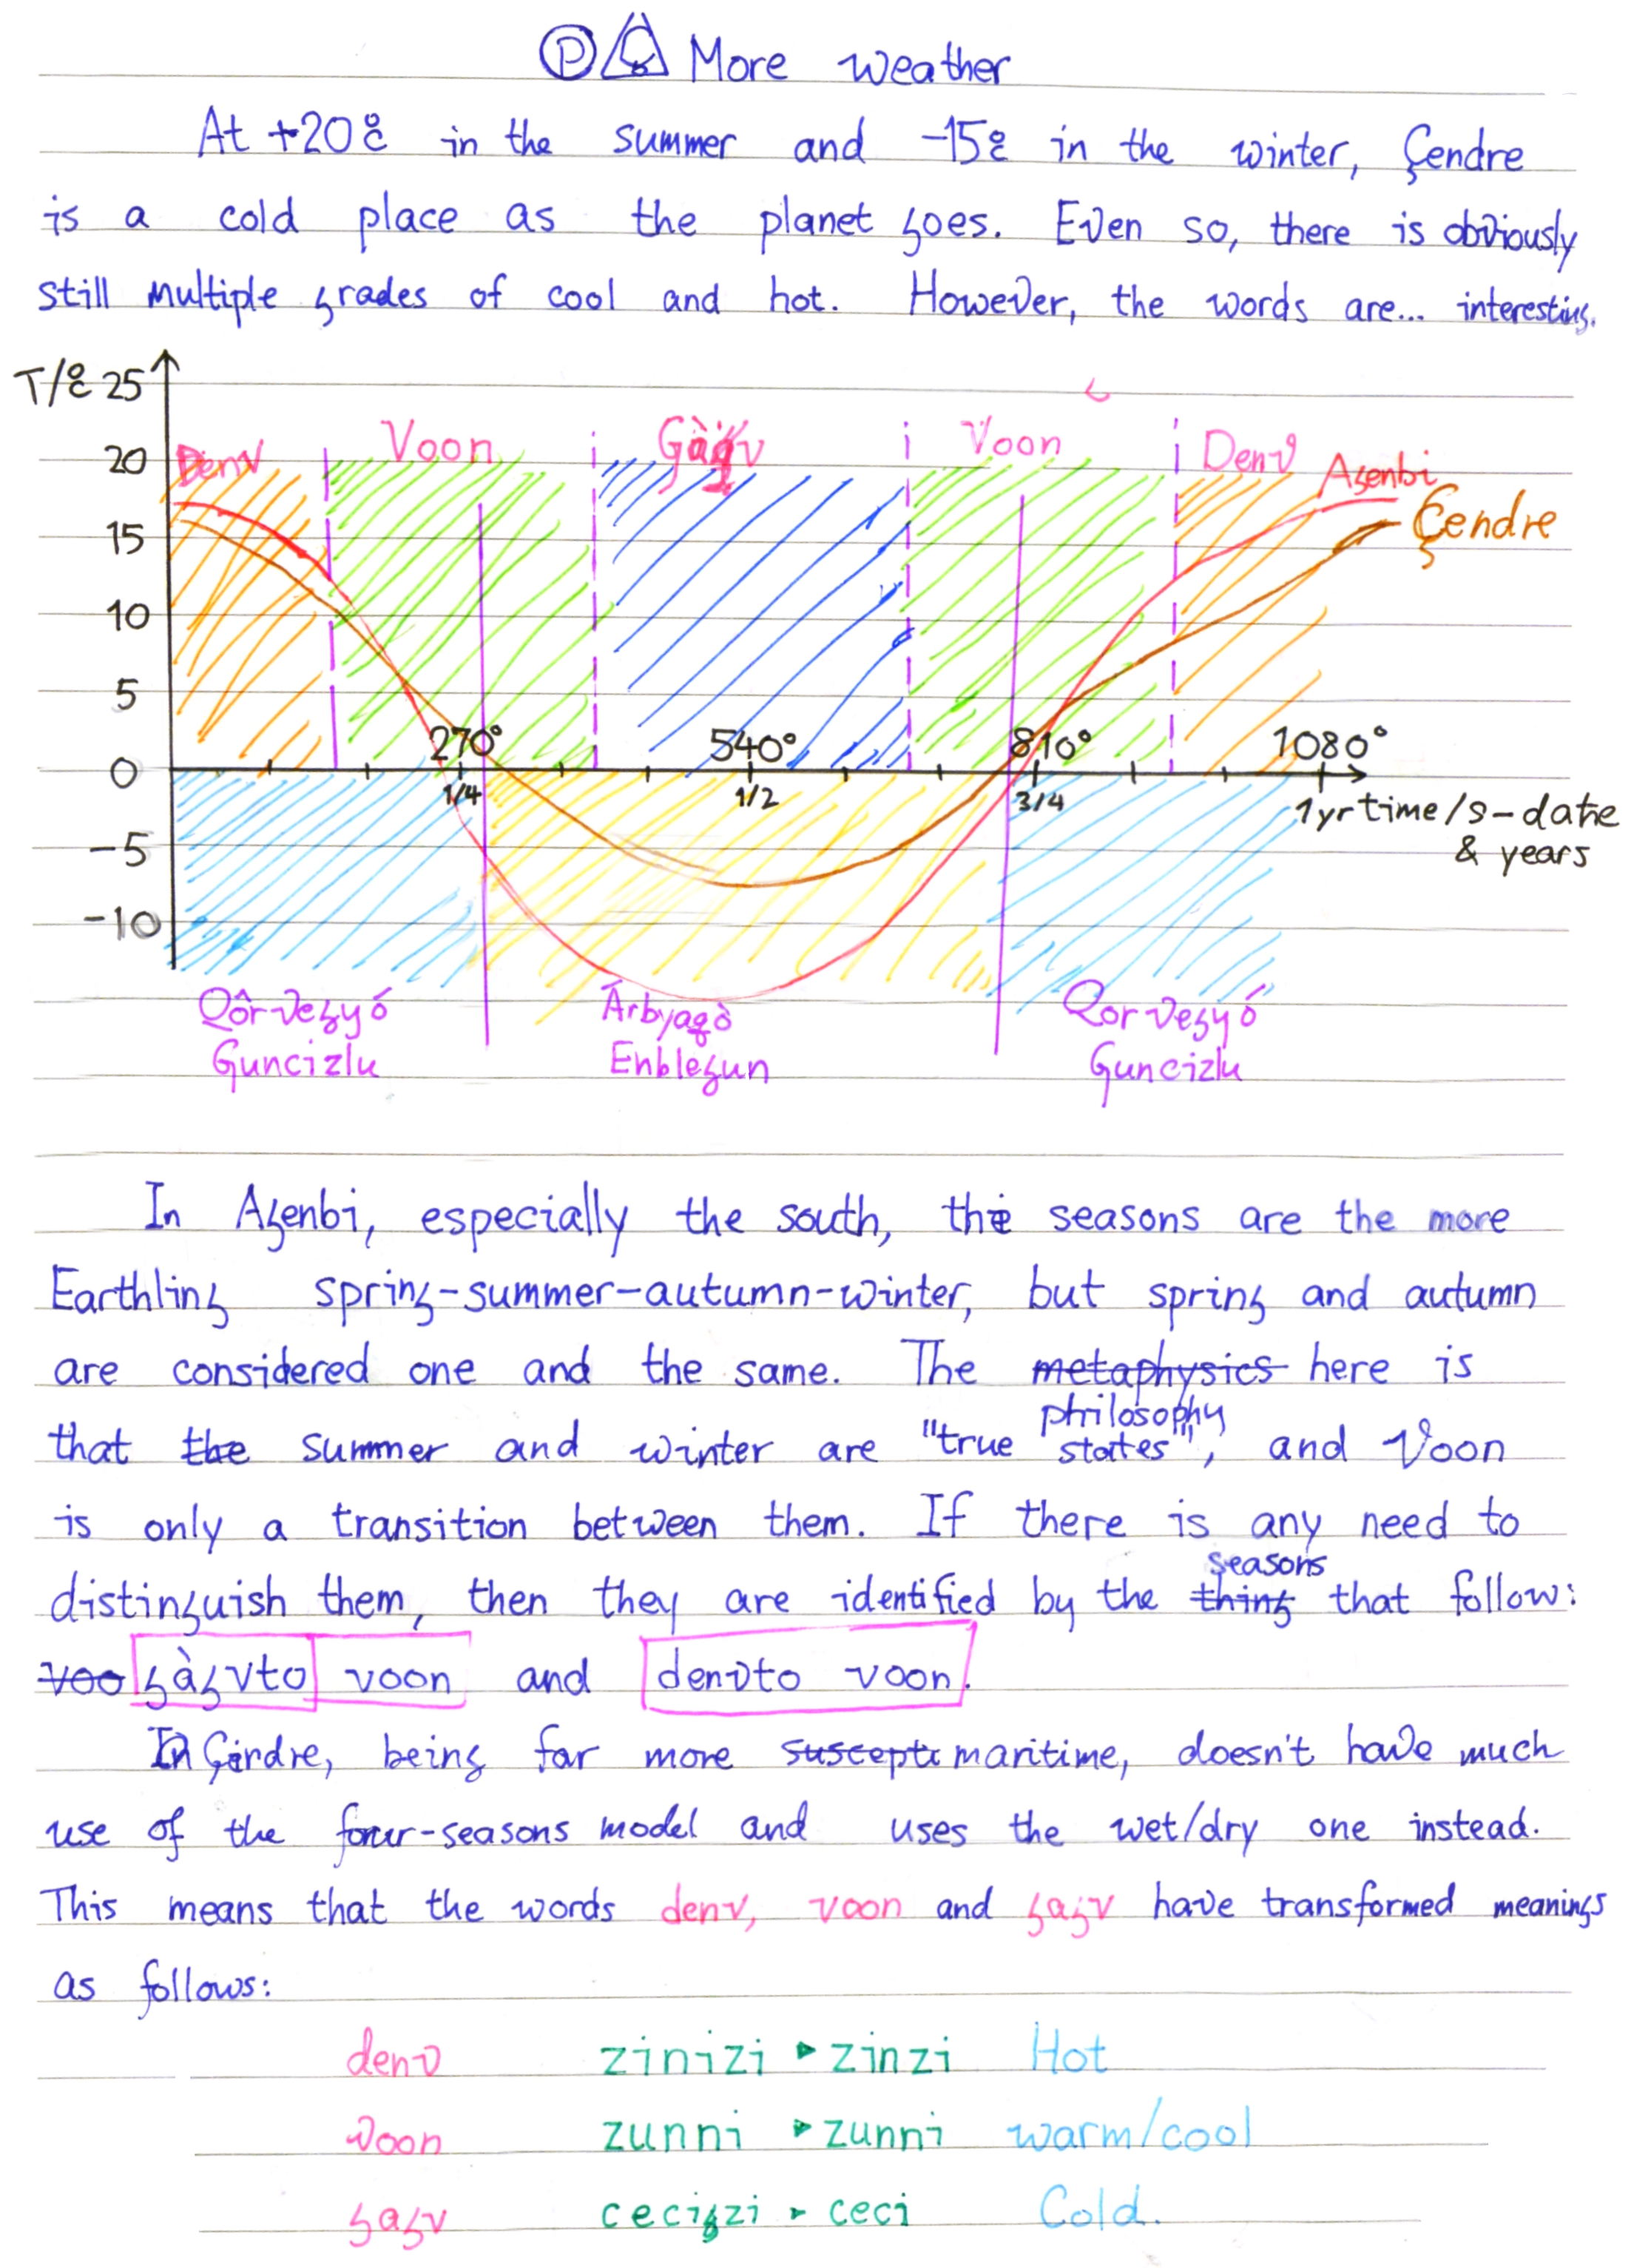 Ⓟ More weather
At +20°C in the summer and -15°C in the winter, Çendre
is a cold place as the planet goes. Even so, there is obviously
still multiple grades of cool and hot. However, the words are... interesting.
T/°C 25
20
15
10
5
0
-5
-10
Denv Voon Gàgv Voon Denv
Agenbi
Çendre
270° 540° 810° 1080°
1/4 1/2 3/4 1yr time/s-date
& years
Qôrvegyó Árbyagò Qorvegyó
Guncizlu Enblegun Guncizlu
In Agenbi, especially the south, the seasons are the more
Earthling spring-summer-autumn-winter, but spring and autumn
are considered one and the same. The metaphysics here is
philosophy
that the summer and winter are "true states", and Voon
is only a transition between them. If there is any need to
seasons
distinguish them, then they are identified by the thing that follow:
voo gàgvto voon and denvto voon.
In Çendre, being far more suscepti maritime, doesn't have much
use of the four-seasons model and uses the wet/dry one instead.
This means that the words denv, voon and gagv have transformed meanings
as follows:
denv zinizi ▸ zinzi Hot
voon zunni ▸ zunni warm/cool
gagv cecigzi ▸ ceci Cold.